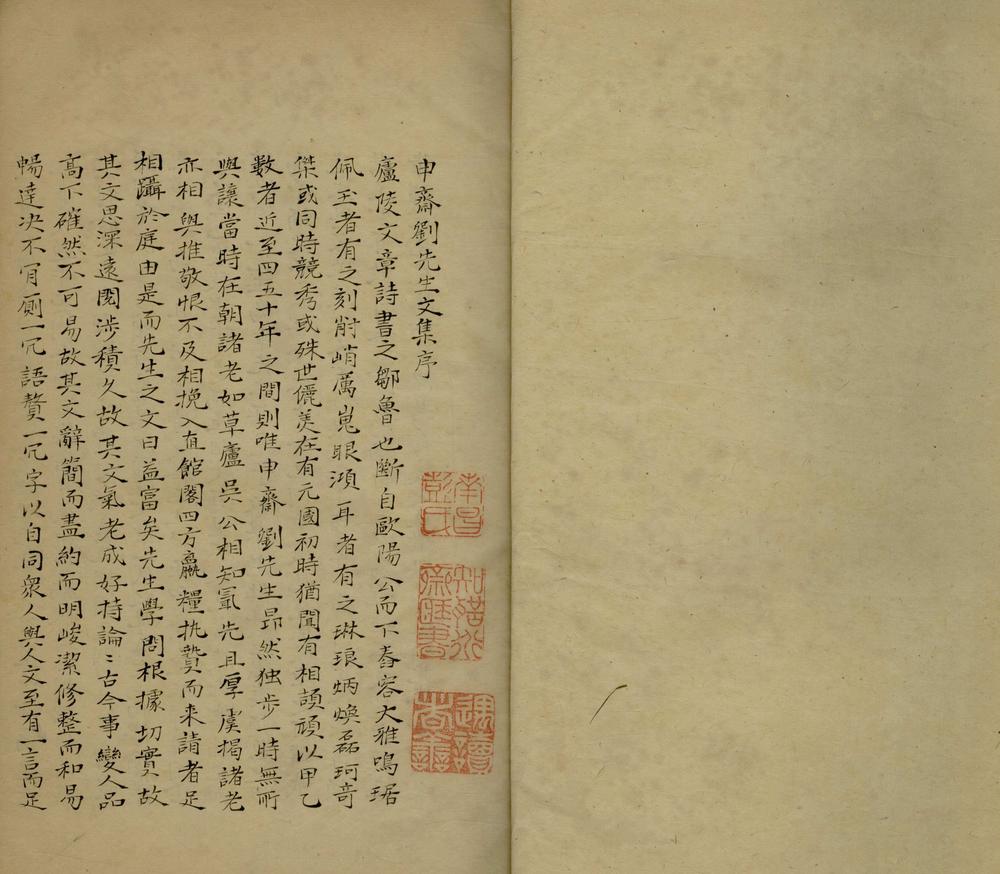 申齋劉先生文集序
廬陵文章詩書之鄒魯也斷自歐陽公而下舂容大雅鳴琚
佩玉者有之刻削峭厲嵬眼澒耳者有之琳琅炳煥磊砢竒
傑或同時競秀或殊世儷美在有元國初時猶聞有相頡頏以甲乙
数者近至四五十年之間則唯申齋劉先生昻然独步一時無所
與讓當時在朝諸老如草廬吳公相知冣先且厚虞揭諸老
亦相與推敬恨不及相挽入直館閣四方贏糧执贄而来請者足
相躡於庭由是而先生之文日益富矣先生學問根據切實故
其文思深遠閱涉積久故其文氣老成好持論〻古今事變人品
高下確然不可易故其文辭簡而盡約而明峻潔修整而和易
暢達决不肎厠一冗語贅一冗字以自同衆人與人文至有一言而足
南昌彭氏
知聖道齋藏書
遇讀者善